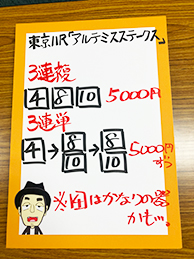 東京11R「アルテミスステークス」
3連複
4 8 10 5000円
3連単
4→8/10→8/10 5000円ずつ
※4はかなりの
かも…